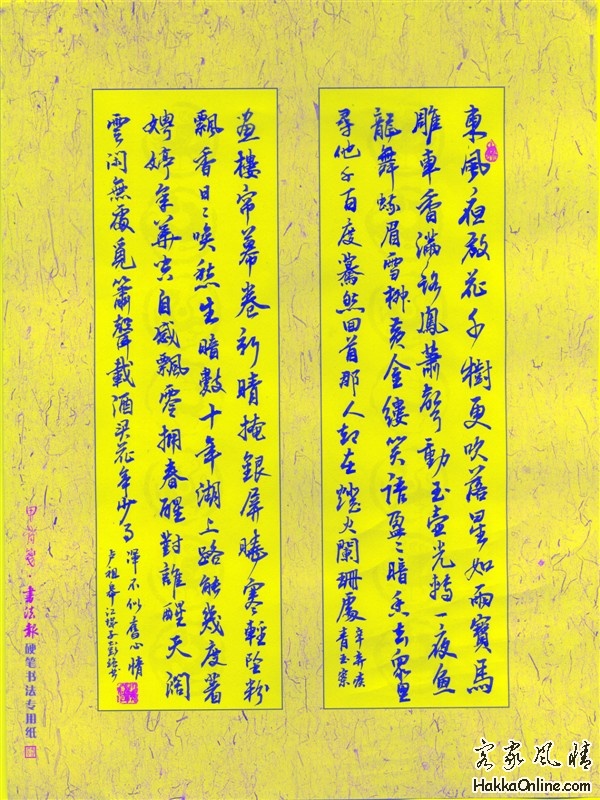 東風夜放花千樹更吹落星如雨寶馬
雕車香滿路鳳蕭聲動玉壺光轉一夜魚
龍舞蛾眉雪柳黃金縷笑語盈〻暗香去衆里
尋他千百度驀然回首那人却在燈火闌珊處
辛弃疾
青玉案
畫樓帘幕卷新晴掩銀屏曉寒輕墜粉
飄香日〻唤愁生暗數十年湖上路能幾度著
娉婷年華空自感飄零擁春酲對誰醒天闊
雲闲無處覓簫聲載酒買花年少事
渾不似舊心情
卢祖皋江城子
甲骨笺·書法報硬笔书法专用纸
客家風情
HakkaOnline.com